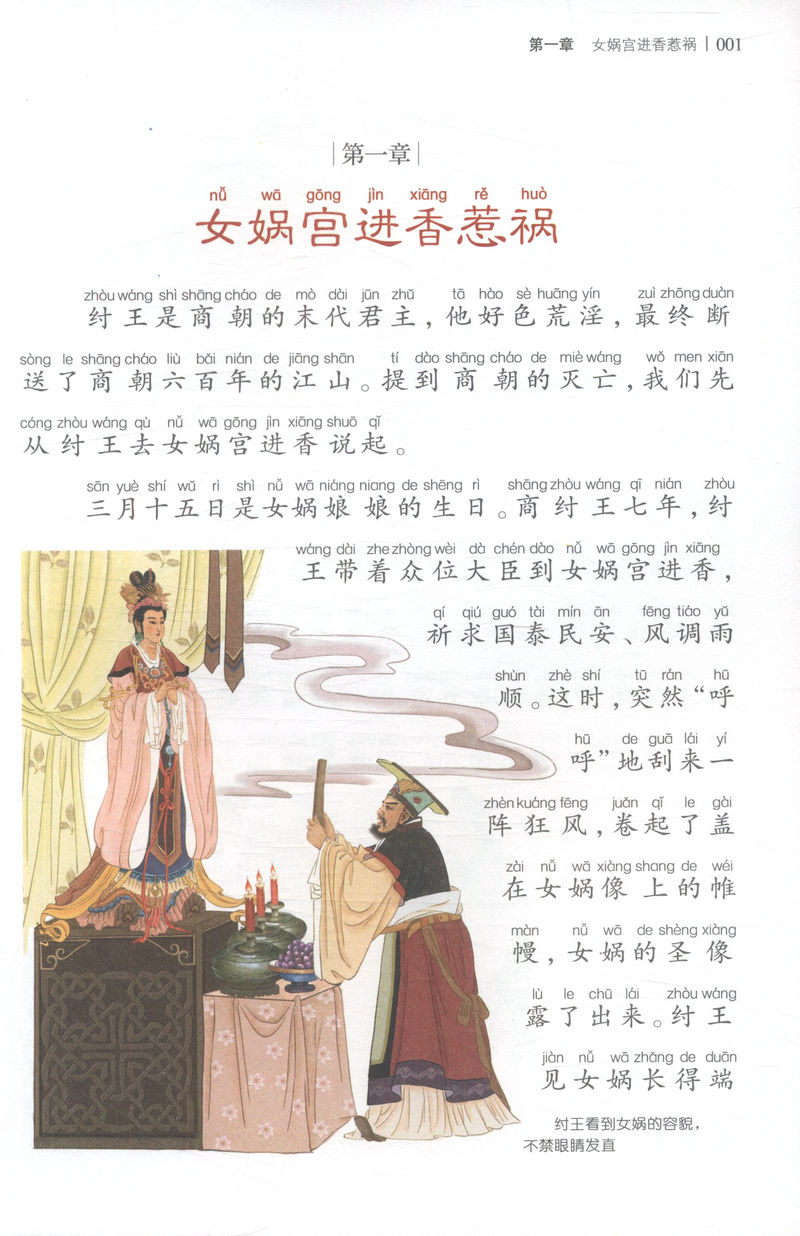 第一章 女娲宫进香惹祸 001
第一章
nǚ wā gōng jìn xiāng rě huò
女娲宫进香惹祸
zhòu wáng shì shāng cháo de mò dài jūn zhǔ tā hào sè huāng yín zuì zhōng duàn
纣王是商朝的末代君主，他好色荒淫，最终断
sòng le shāng cháo liù bǎi nián de jiāng shān tí dào shāng cháo de miè wáng wǒ men xiān
送了商朝六百年的江山。提到商朝的灭亡，我们先
cóng zhòu wáng qù nǚ wā gōng jìn xiāng shuō qǐ
从纣王去女娲宫进香说起。
sān yuè shí wǔ rì shì nǚ wā niáng niang de shēng rì shāng zhòu wáng qī nián zhòu
三月十五日是女娲娘娘的生日。商纣王七年，纣
wáng dài zhe zhòng wèi dà chén dào nǚ wā gōng jìn xiāng
王带着众位大臣到女娲宫进香，
qí qiú guó tài mín ān fēng tiáo yǔ
祈求国泰民安、风调雨
shùn zhè shí tū rán hū
顺。这时，突然“呼
hū de guā lái yí
呼”地刮来一
zhèn kuáng fēng juǎn qǐ le gài
阵狂风，卷起了盖
zài nǚ wā xiàng shang de wéi
在女娲像上的帷
màn nǚ wā de shèng xiàng
幔，女娲的圣像
lù le chū lái zhòu wáng
露了出来。纣王
jiàn nǚ wā zhǎng de duān
见女娲长得端
纣王看到女娲的容貌，
不禁眼睛发直